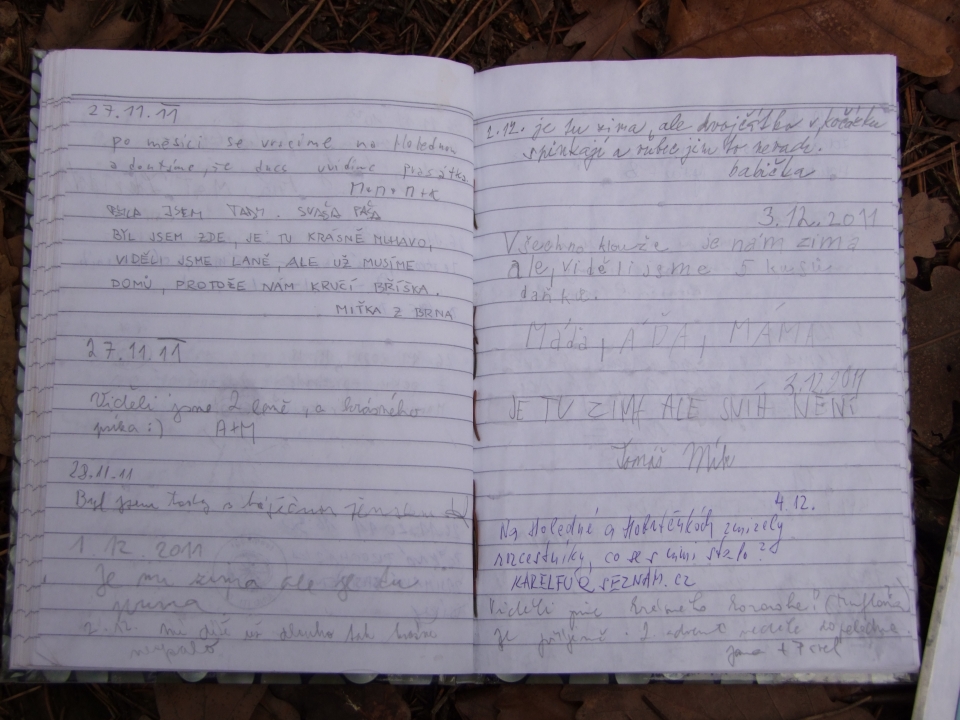 27.11.11
po měsíci se vracíme na Holednou
a doufáme, že dnes uvidíme prasátka
M+M+M+K
BYLA JSEM TADY. SVAČA PÁČA
BYL JSEM ZDE, JE TU KRÁSNĚ MLHAVO,
VIDĚLI JSME LANĚ, ALE UŽ MUSÍME
DOMŮ, PROTOŽE NÁM KRUČÍ BŘÍŠKA.
MIŤKA Z BRNA
27.11.11
Viděli jsme 2 laně, a krásného
:) A+M
28.11.11
Byl jsem tady s báječnou ženskou
1.12.2011
Je mi zima ale je tu
2.12. mi dítě už dlouho tak
nespalo
2.12. je tu zima, ale dvojčátka v kočárku
spinkají a rubie jim to nevadí.
babička
3.12.2011
Všechno klouže je nám zima
ale, viděli jsme 5 kusů
daňků.
Máďa, ÁĎA, MÁMA
3.12.2011
JE TU ZIMA ALE SNÍH NENÍ
Tomáš
4.12.
Na Holedné a Hobrtěnkách zmizely
rozcestníky, co se s nimi stalo?
KARELFU@SEZNAM.CZ
Viděli jsme (muflona)
Je příjemně. advent neděle
Jana +